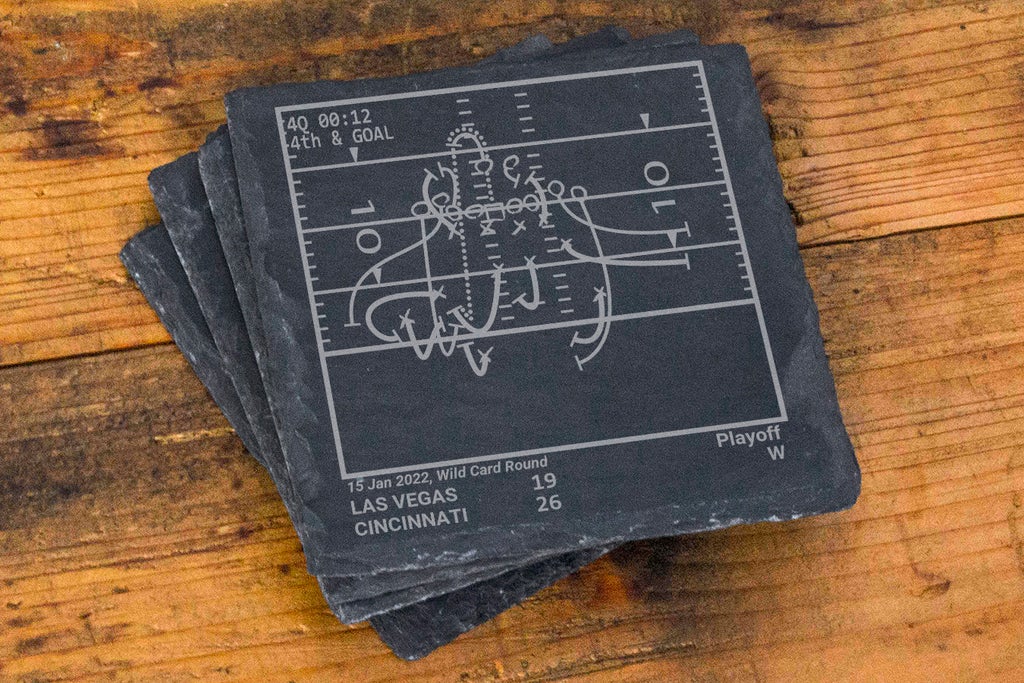 4Q 00:12
4th & GOAL
10
10
15 Jan 2022, Wild Card Round
LAS VEGAS 19
CINCINNATI 26
Playoff
W